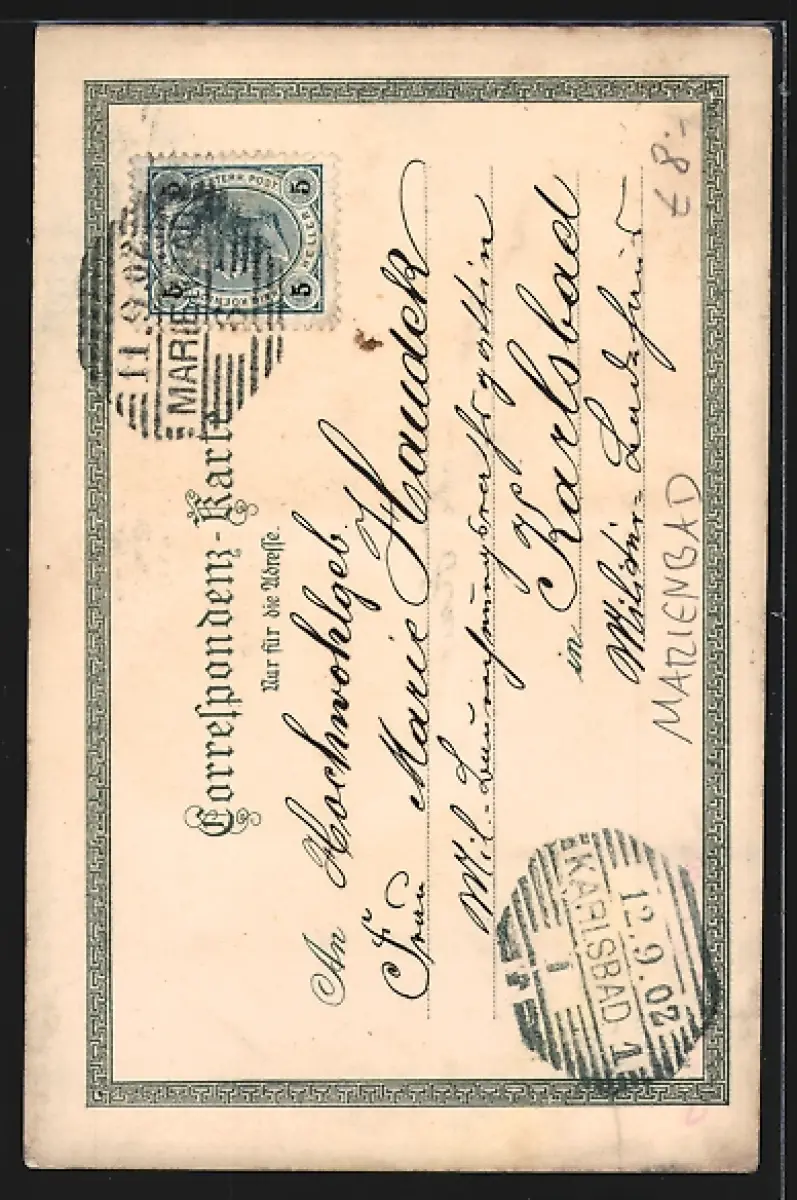 Correspondenz-Karte
Nur für die Adresse.
An Hochwohlgeb.
Frau Marie Haudek
Mil.-Baurechnungsratsgattin
in Karlsbad
Militär-Badehaus
MARIENBAD
£ 8.-
5 5
5 5
11.9.02
MARIENBAD
12.9.02
KARLSBAD 1
1